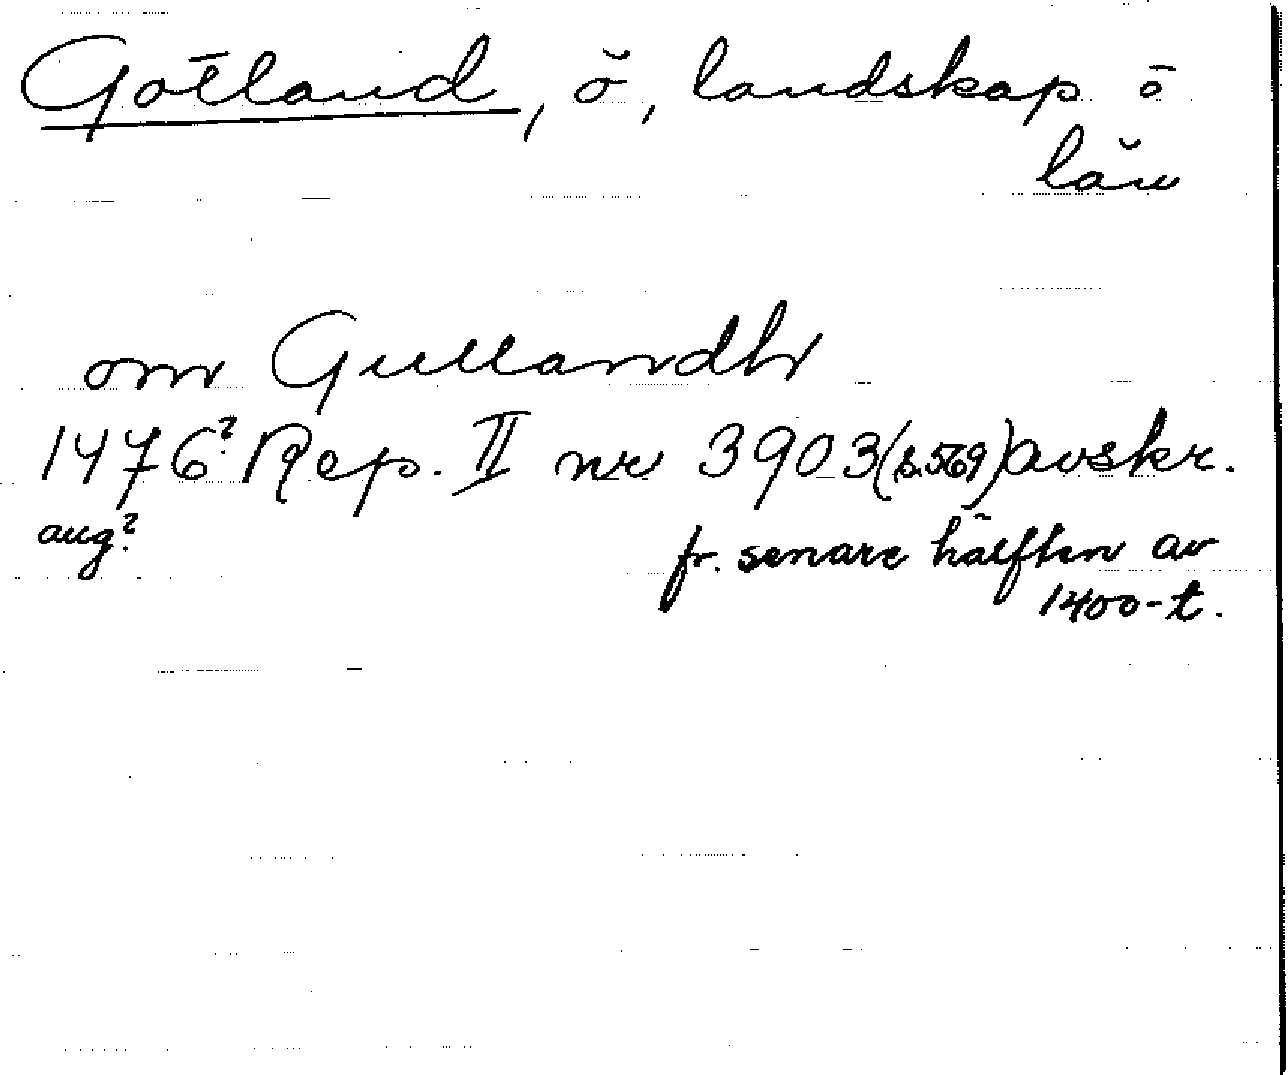 Gotland, ö, landskap o
län
om Gullandh
1476? Rep. II nr 3903 (s. 569) avskr.
aug?
fr. senare hälften av
1400-t.